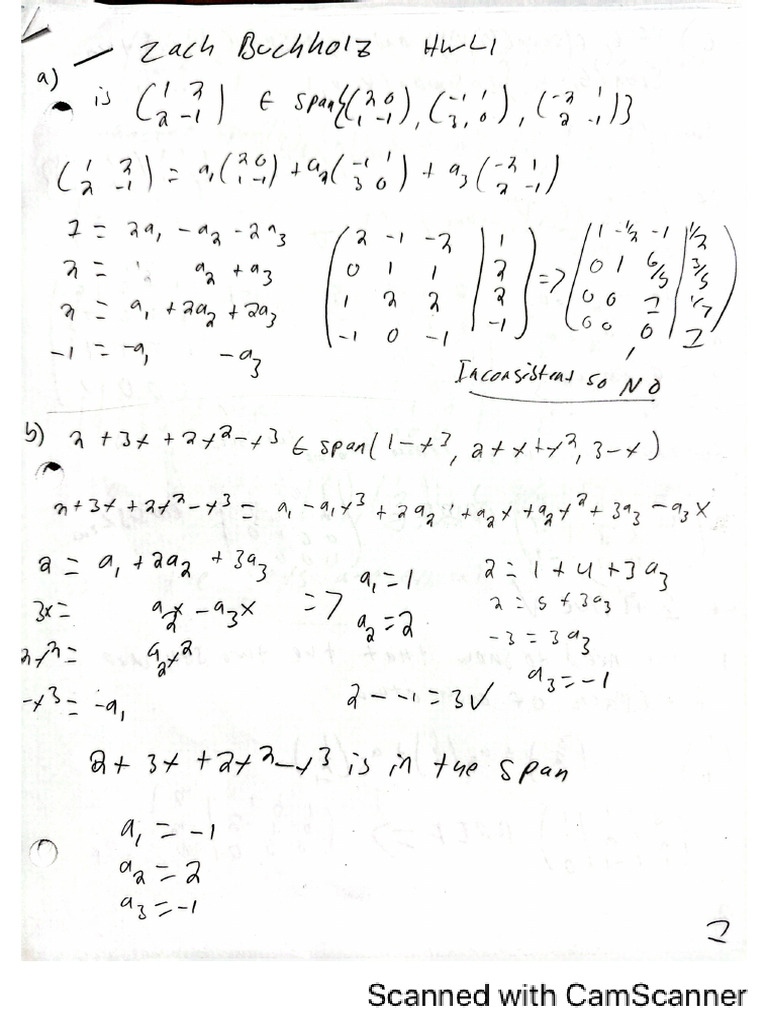 Zach Buchholz HWL1
a)
is (1 2 / 2 -1) ∈ span{(2 0 / 1 -1), (-1 1 / 3, 0), (-2 1 / 2 -1)}
(1 2 / 2 -1) = a₁(2 0 / 1 -1) + a₂(-1 1 / 3 0) + a₃(-2 1 / 2 -1)
1 = 2a₁ - a₂ - 2a₃
2 = a₂ + a₃
2 = a₁ + 2a₂ + 2a₃
-1 = -a₁ -a₃
(2 -1 -2 | 1 / 0 1 1 | 2 / 1 2 2 | 2 / -1 0 -1 | -1) => (1 -1/2 -1 | 1/2 / 0 1 6/5 | 3/5 / 0 0 1 | 1/7 / 0 0 0 | 1)
Inconsistent so NO
b) 2 + 3x + 2x² - x³ ∈ span(1 - x³, 2 + x + x², 3 - x)
2 + 3x + 2x² - x³ = a₁ - a₁x³ + 2a₂ + a₂x + a₂x² + 3a₃ - a₃x
2 = a₁ + 2a₂ + 3a₃
3x = a₂x - a₃x
2x² = a₂x²
-x³ = -a₁
=> a₁ = 1
a₂ = 2
2 = 1 + 4 + 3a₃
2 = 5 + 3a₃
-3 = 3a₃
a₃ = -1
2 - -1 = 3 ✓
2 + 3x + 2x² - x³ is in the span
a₁ = -1
a₂ = 2
a₃ = -1
Scanned with CamScanner